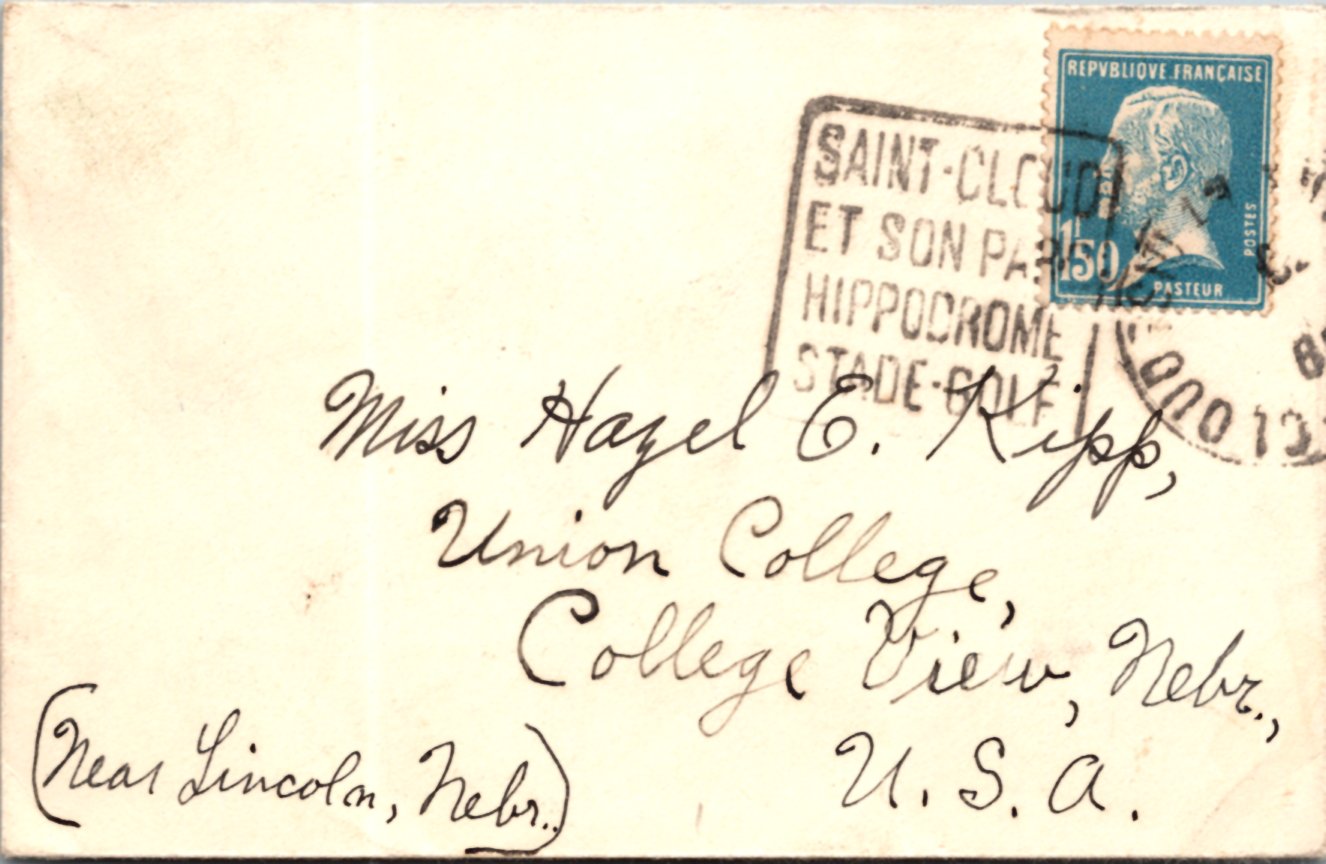 REPVBLIQVE FRANÇAISE
1F50
POSTES
PASTEUR
SAINT-CLOUD
ET SON PARC
HIPPODROME
STADE-GOLF
Miss Hazel E. Kipp,
Union College,
College View, Nebr.,
U. S. A.
(Near Lincoln, Nebr.)